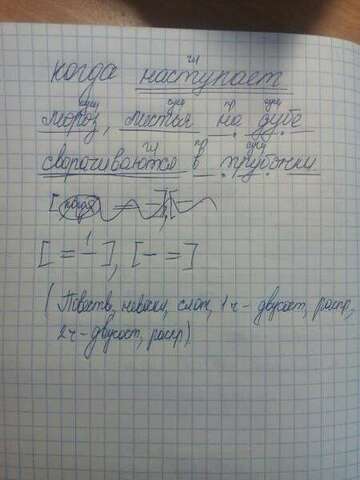 гл
когда наступает
сущ сущ пр сущ
мороз, листья на дубе
гл пр сущ
сворачиваются в трубочки
[когда = –], [– =]
[= –], [– =]
(Повеств, невоскл, слож, 1ч – двусост, распр,
2ч – двусост, распр)